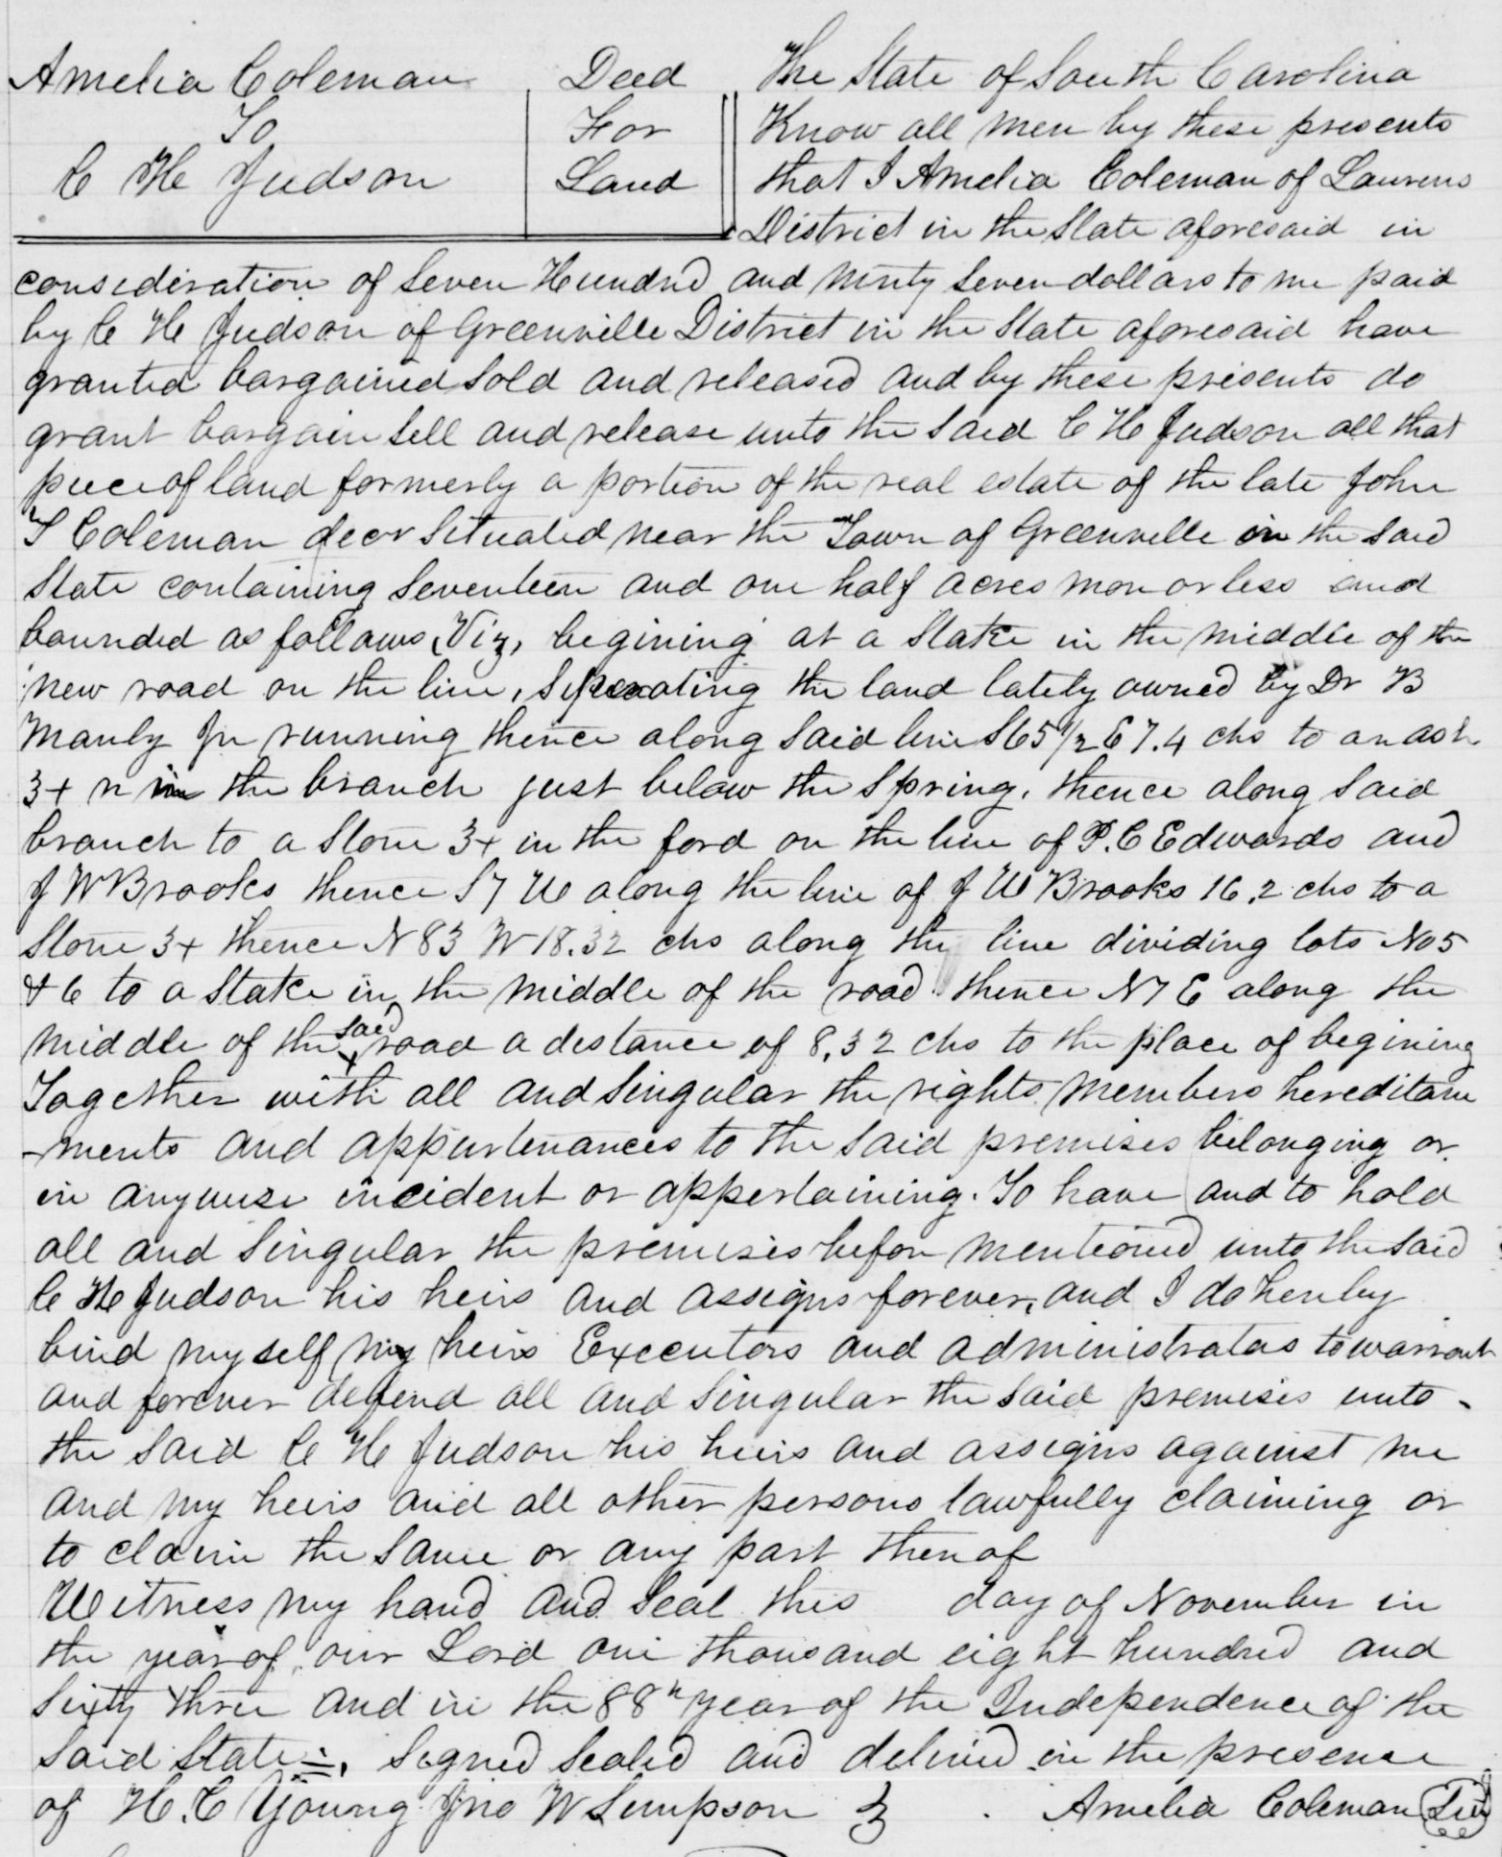 Amelia Coleman Deed The State of South Carolina
To For Know all men by these presents
C H Judson Land that I Amelia Coleman of Laurens
District in the State aforesaid in
consideration of Seven Hundred and ninty Seven dollars to me paid
by C H Judson of Greenville District in the State aforesaid have
granted bargained Sold and released and by these presents do
grant bargain Sell and release unto the Said C H Judson all that
piece of land formerly a portion of the real estate of the late John
T Coleman decd Situated near the Town of Greenville in the Said
State containing Seventeen and one half acres more or less and
bounded as follows, Viz, begining at a Stake in the middle of the
new road on the line, Seperating the land lately owned by Dr B
Manly Jr running thence along Said line S65 1/2 E 7.4 chs to an ash
3+ n in the branch just below the Spring, thence along Said
branch to a Stone 3+ in the ford on the line of P. C Edwards and
J W Brooks thence S7 W along the line of J W Brooks 16.2 chs to a
Stone 3+ thence N 83 W 18.32 chs along the line dividing lots No 5
& 6 to a Stake in the middle of the road thence N7 E along the
middle of the said road a distance of 8.32 chs to the place of begining
Together with all and Singular the rights members hereditam
-ments and appurtenances to the Said premises belonging or
in anywise incident or appertaining. To have and to hold
all and Singular the premises before mentioned unto the Said
C H Judson his heirs and assigns forever, and I do hereby
bind myself my heirs Executors and administrators to warrant
and forever defend all and Singular the Said premises unto
the Said C H Judson his heirs and assigns against me
and my heirs and all other persons lawfully claiming or
to claim the Same or any part thereof
Witness my hand and Seal this day of November in
the year of our Lord one thousand eight hundred and
Sixty three and in the 88th year of the Independence of the
Said State. Signed Sealed and delivered in the presence
of H. C Young Jno W Simpson } Amelia Coleman